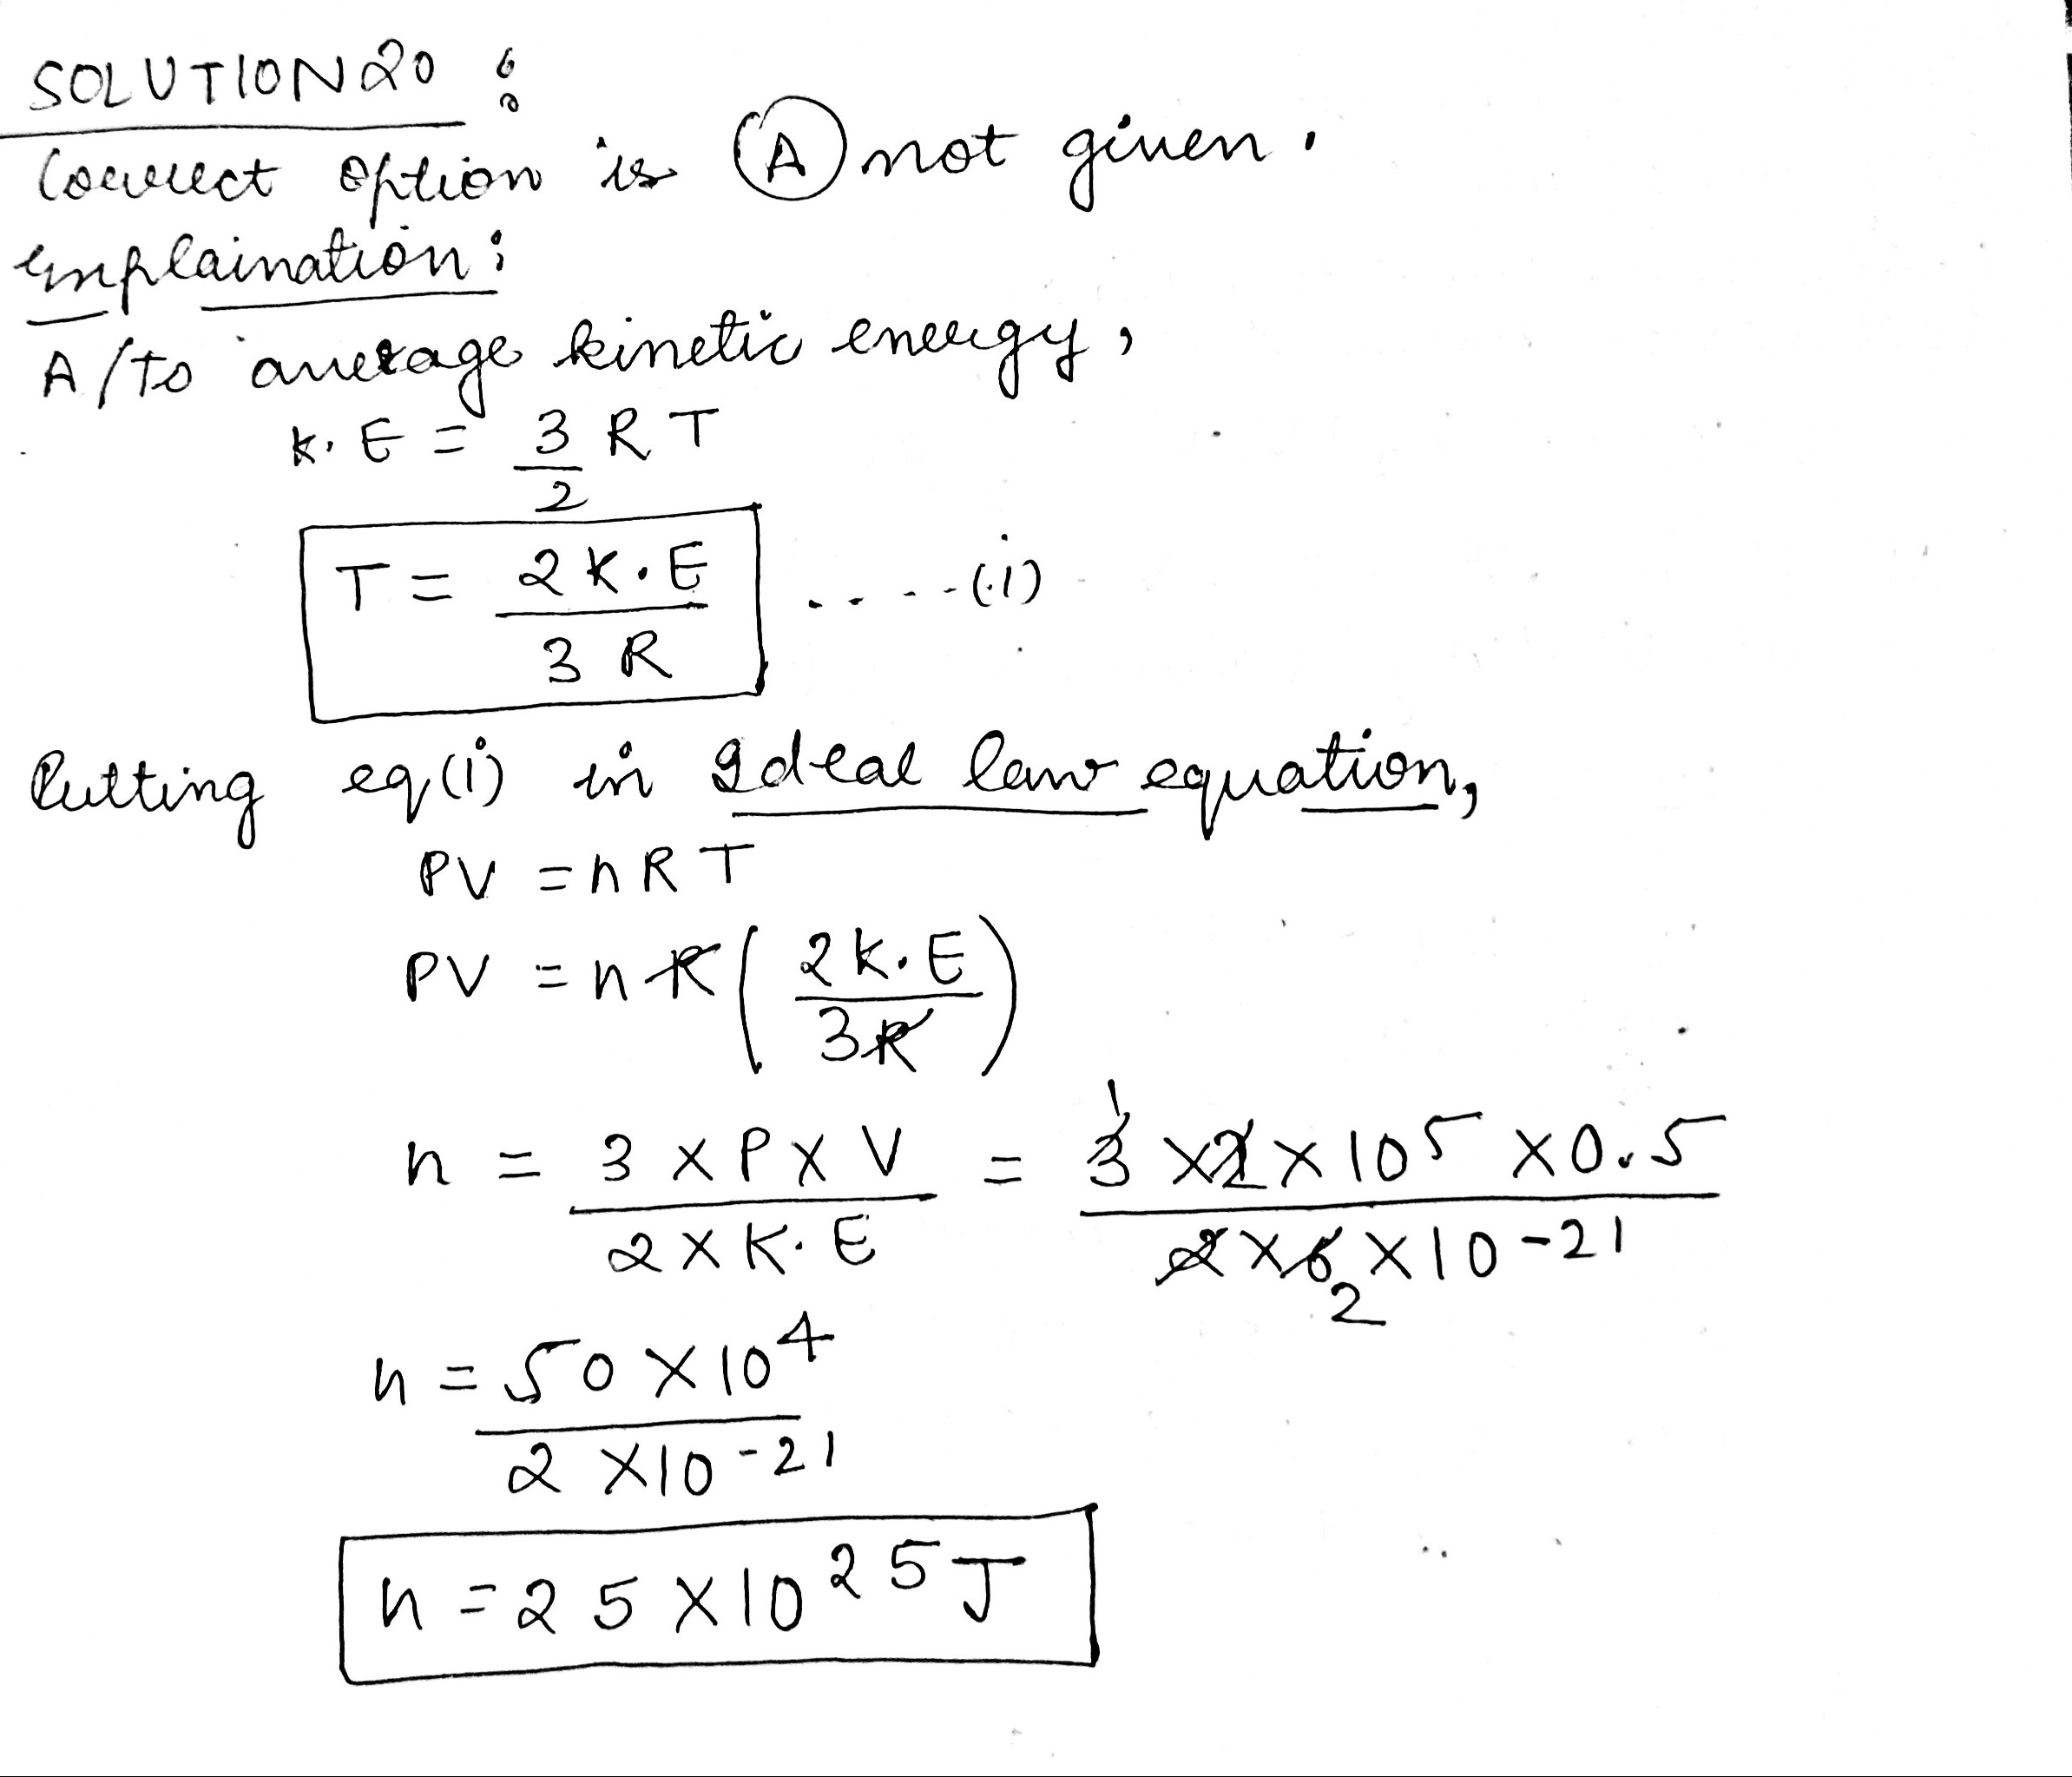 SOLUTION 20 :
Correct option is (A) not given.
explaination:
A/to average kinetic energy,
K.E = 3/2 RT
T = 2K.E / 3R ....(i)
Putting eq(i) in Ideal law equation,
PV = nRT
PV = nR (2K.E / 3R)
n = 3 × P × V / 2 × K.E = 3 × 2 × 10^5 × 0.5 / 2 × 6 × 10^-21
1
2
n = 50 × 10^4 / 2 × 10^-21
n = 25 × 10^25 J